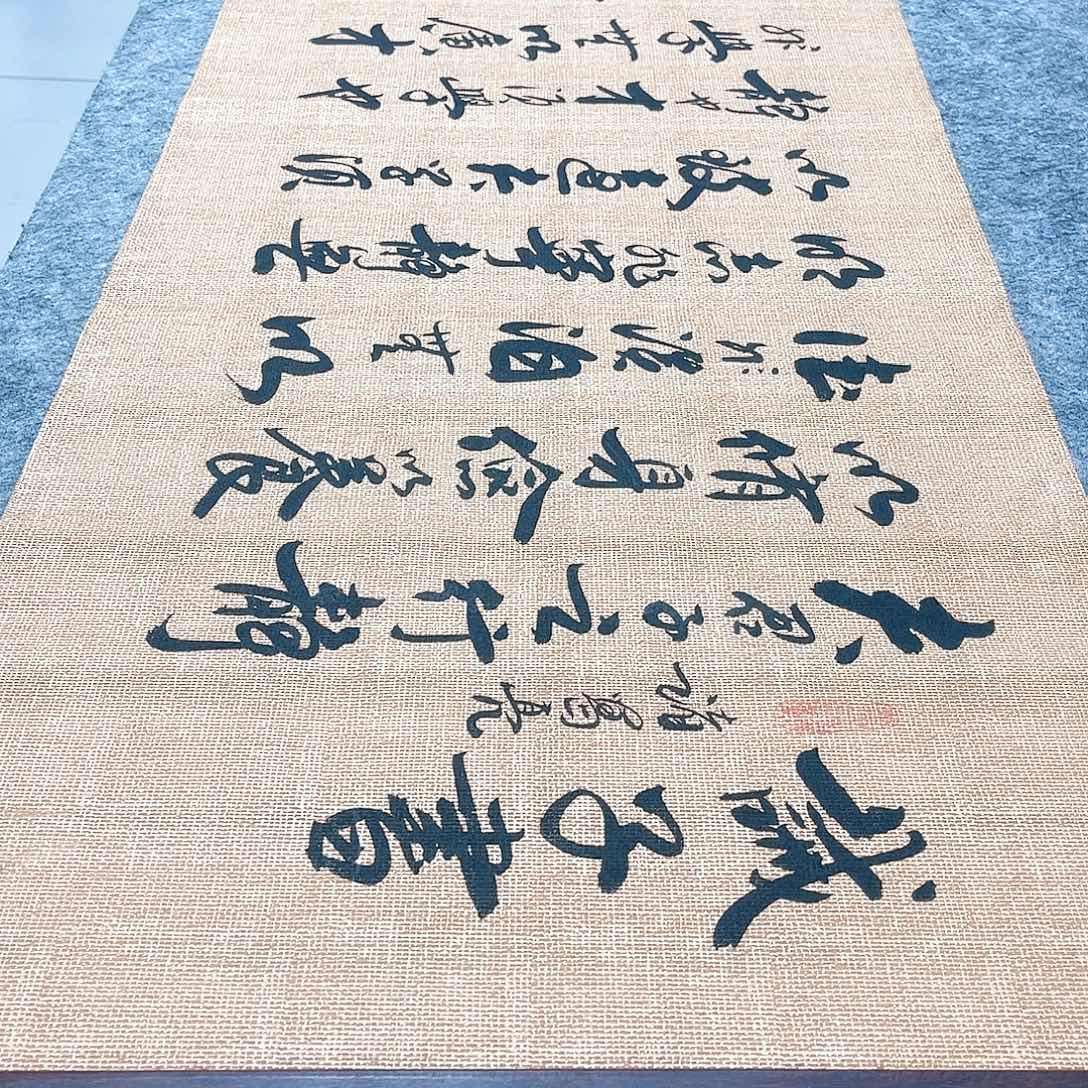 誡子書
諸葛亮
夫君子之行靜
以脩身儉以養
德非澹泊無以
明志非寧靜無
以致遠夫學須
靜也才須學也
非學無以廣才